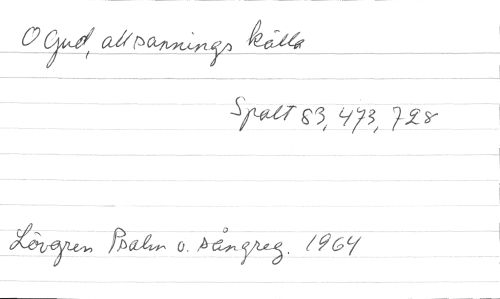 O Gud, all sannings källa
Spalt 83, 473, 728
Lövgren Psalm o. sångreg. 1964